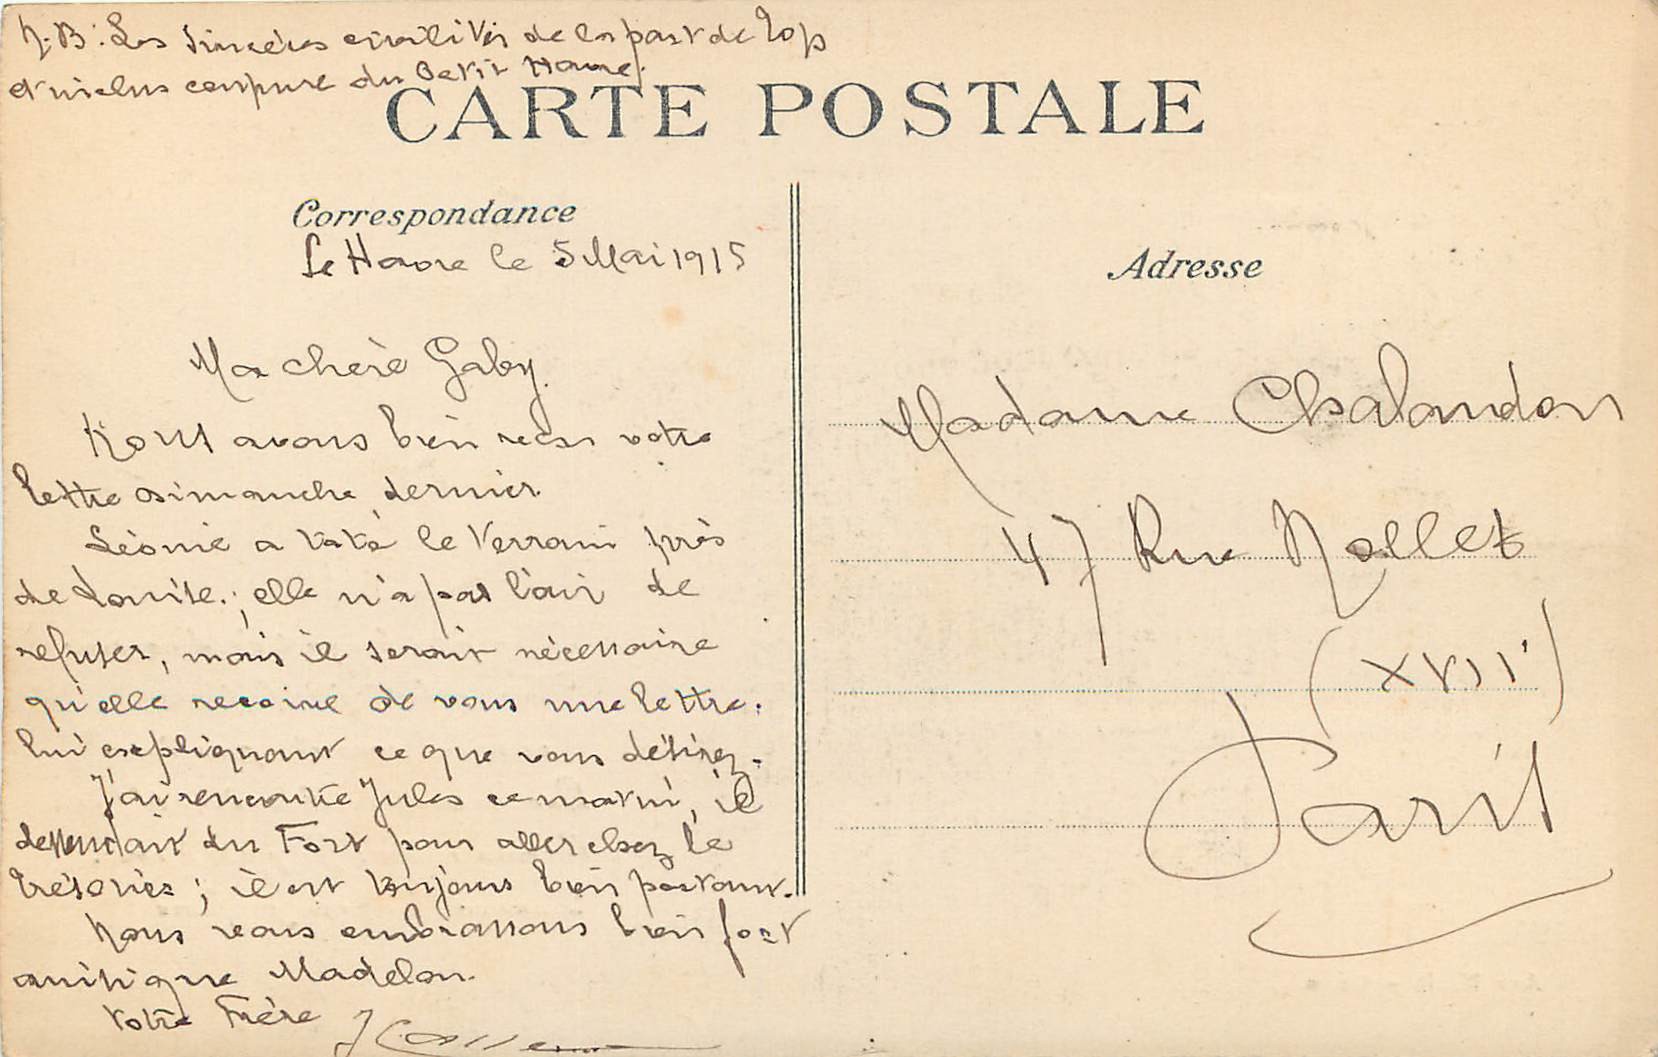 N.B. Les sincères civilités de la part de Top
et inclus coupure du Petit Havre.
CARTE POSTALE
Correspondance
Le Havre le 5 Mai 1915
Ma chère Gaby.
Nous avons bien reçu votre
lettre dimanche dernier.
Léonie a tâté le terrain près
de Louise.; elle n'a pas l'air de
refuser, mais il serait nécessaire
qu'elle reçoive de vous une lettre.
lui expliquant ce que vous désirez.
J'ai rencontré Jules ce matin, il
descendait du Fort pour aller chez le
trésorier; il est toujours bien portant.
Nous vous embrassons bien fort
ainsi que Madelon.
Votre Frère
Adresse
Madame Chalandon
47 Rue Nollet
(XVII)
Paris